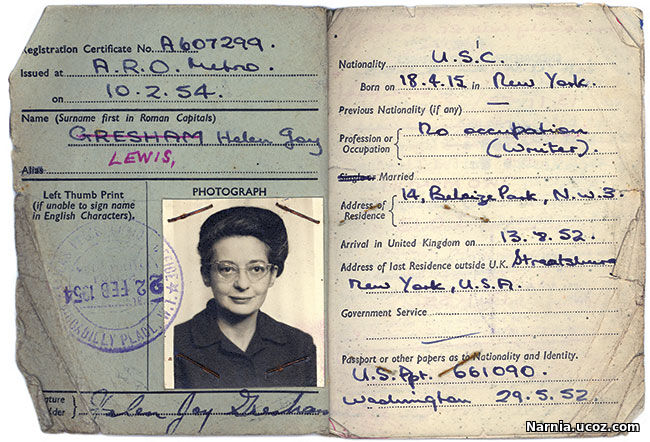 Registration Certificate No. A607299.
Issued at A.R.O. Metro.
on 10.2.54.
Name (Surname first in Roman Capitals)
GRESHAM Helen Joy
LEWIS,
Alias
Left Thumb Print
(if unable to sign name
in English Characters).
PHOTOGRAPH
2 FEB 1954
PICCADILLY PLACE, W.1.
Signature
of Holder Helen Joy Gresham
Nationality U.S.C.
Born on 18.4.15 in New York.
Previous Nationality (if any) —
Profession or
Occupation No occupation
(Writer).
Single or Married
Address of
Residence 14, Belsize Park, N.W.3.
Arrival in United Kingdom on 13.8.52.
Address of last Residence outside U.K. Staatsburg
New York, U.S.A.
Government Service
Passport or other papers as to Nationality and Identity.
U.S. Ppt. 661090.
Washington 29.5.52.
Narnia.ucoz.com